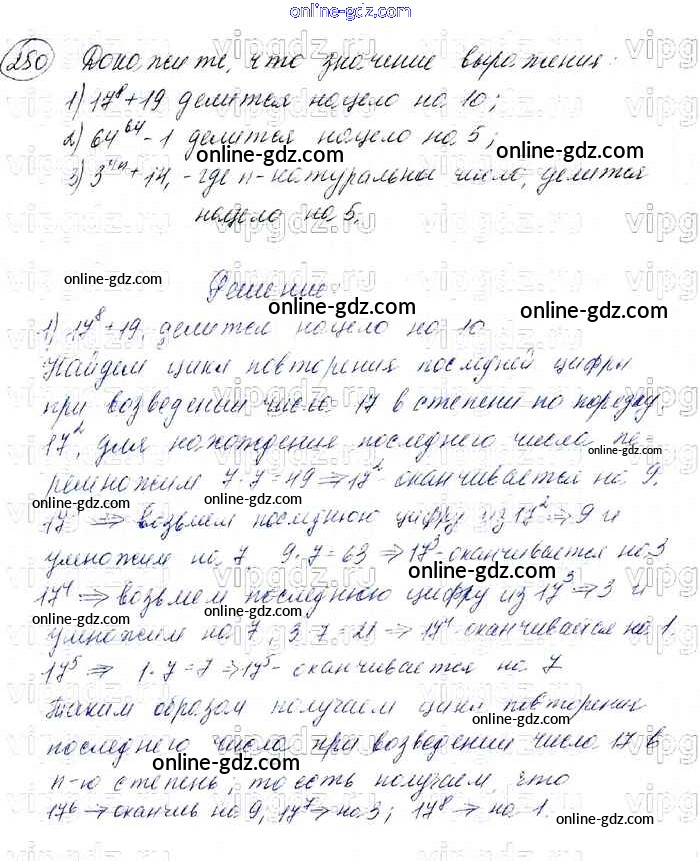 online-gdz.com
250 Докажите, что значение выражения:
1) 17⁸+19 делится нацело на 10;
2) 64⁶⁴-1 делится нацело на 5;
online-gdz.com
3) 3⁴ⁿ+14, -где n-натуральное число, делится
нацело на 5.
online-gdz.com
online-gdz.com
Решение:
online-gdz.com
1) 17⁸+19, делится нацело на 10
Найдем цикл повторения последней цифры
при возведении числа 17 в степени по порядку.
17², для нахождения последнего числа пе-
online-gdz.com
ремножим 7·7=49 ⇒17² оканчивается на 9.
online-gdz.com
⇒ возьмем последнюю цифру из 17² ⇒ 9 и
умножим на 7. 9·7=63 ⇒17³-оканчивается на 3
online-gdz.com
17⁴ ⇒ возьмем последнюю цифру из 17³ ⇒ 3 и
online-gdz.com
умножим на 7, 3·7=21 ⇒ 17⁴-оканчивается на 1.
17⁵ ⇒ 1·7=7 ⇒17⁵- оканчивается на 7
Таким образом получаем цикл повторения
online-gdz.com
последнего числа при возведении числа 17 в
n-ю степень, то есть получаем, что
online-gdz.com
17⁶ ⇒ оканчив на 9, 17⁷ ⇒ на 3; 17⁸ ⇒ на 1.
online-gdz.com